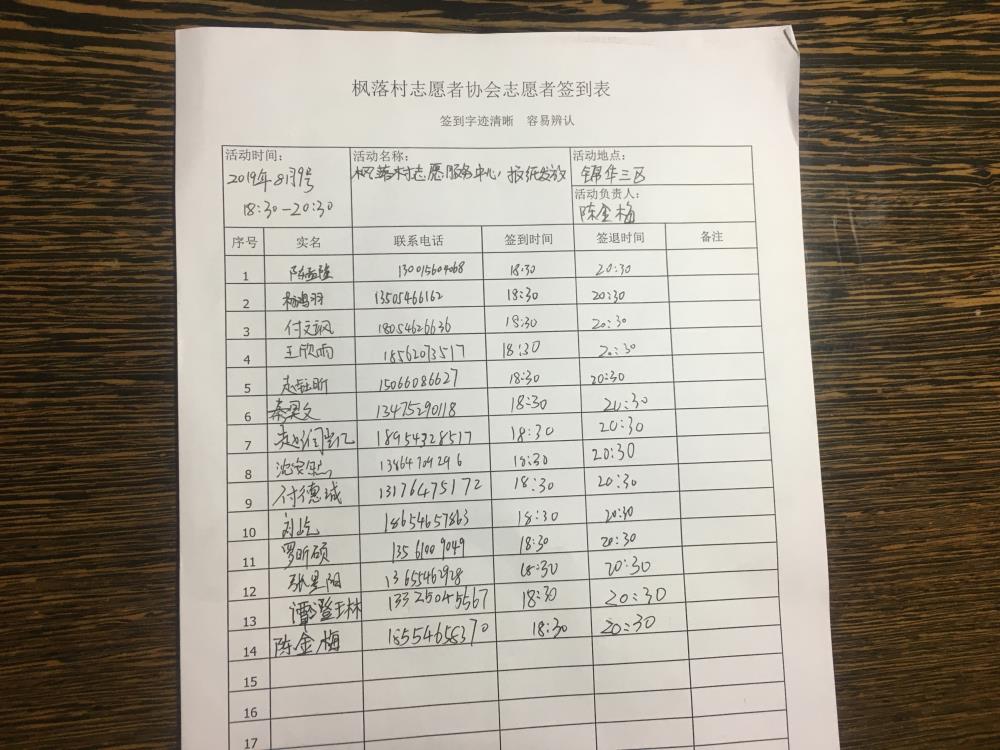 枫落村志愿者协会志愿者签到表
签到字迹清晰 容易辨认
活动时间： 活动名称： 活动地点：
2019年8月9号 枫落村志愿服务中心，报纸发放 锦华三区
18:30-20:30 活动负责人：
陈金梅
序号 实名 联系电话 签到时间 签退时间 备注
1 130015604068 18:30 20:30
2 杨鸿羽 13505466162 18:30 20:30
3 付文飒 18054626636 18:30 20:30
4 王欣雨 18562073517 18:30 20:30
5 赵钰昕 15066086627 18:30 20:30
6 秦梁文 13475290118 18:30 20:30
7 18954328517 18:30 20:30
8 13864709296 18:30 20:30
9 付德城 13176475172 18:30 20:30
10 刘屹 18654657863 18:30 20:30
11 罗昕硕 13561009049 18:30 20:30
12 张景阳 13655462928 18:30 20:30
13 谭澄琳 13325045567 18:30 20:30
14 陈金梅 18554658370 18:30 20:30
15
16
17